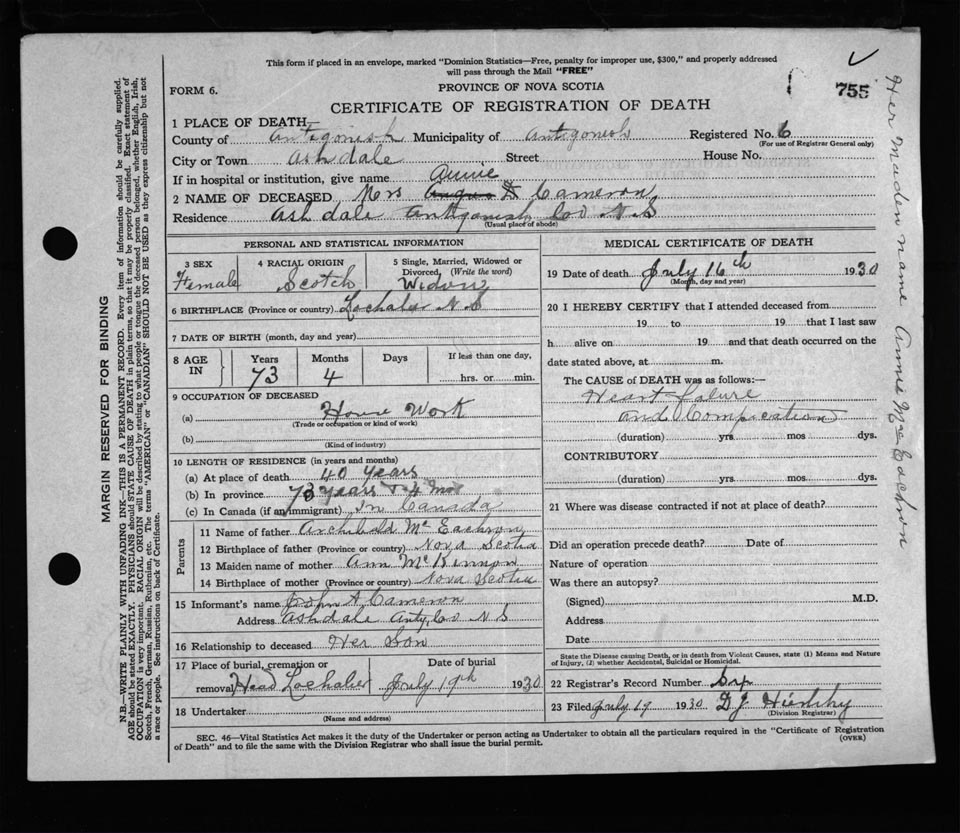 This form if placed in an envelope, marked "Dominion Statistics—Free, penalty for improper use, $300," and properly addressed
will pass through the Mail "FREE"
FORM 6.
PROVINCE OF NOVA SCOTIA
755
CERTIFICATE OF REGISTRATION OF DEATH
1 PLACE OF DEATH
County of Antigonish Municipality of Antigonish Registered No. 6
(For use of Registrar General only)
City or Town Ashdale Street House No.
If in hospital or institution, give name
Annie
2 NAME OF DECEASED Mrs Angus D Cameron
Residence Ashdale Antigonish Co N S
(Usual place of abode)
PERSONAL AND STATISTICAL INFORMATION
3 SEX
Female
4 RACIAL ORIGIN
Scotch
5 Single, Married, Widowed or
Divorced, (Write the word)
Widow
6 BIRTHPLACE (Province or country) Lochaber N S
7 DATE OF BIRTH (month, day and year)
8 AGE
IN
Years
73
Months
4
Days
If less than one day,
hrs. or min.
9 OCCUPATION OF DECEASED
(a) House Work
(Trade or occupation or kind of work)
(b)
(Kind of industry)
10 LENGTH OF RESIDENCE (in years and months)
(a) At place of death 40 years
(b) In province 73 years & 4 mos
(c) In Canada (if an immigrant) In Canada
Parents
11 Name of father Archibald McEachron
12 Birthplace of father (Province or country) Nova Scotia
13 Maiden name of mother Ann McKinnon
14 Birthplace of mother (Province or country) Nova Scotia
15 Informant's name John A Cameron
Address Ashdale Antg Co N S
16 Relationship to deceased Her Son
17 Place of burial, cremation or
removal Head Lochaber
Date of burial
July 19th 1930
18 Undertaker
(Name and address)
MEDICAL CERTIFICATE OF DEATH
19 Date of death July 16th 1930
(Month, day and year)
20 I HEREBY CERTIFY that I attended deceased from
19 to 19 that I last saw
h alive on 19 and that death occurred on the
date stated above, at m.
The CAUSE OF DEATH was as follows:—
Heart falure
and Compication
(duration) yrs. mos. dys.
CONTRIBUTORY
(duration) yrs. mos. dys.
21 Where was disease contracted if not at place of death?
Did an operation precede death? Date of
Nature of operation
Was there an autopsy?
(Signed) M.D.
Address
Date
State the Disease causing Death, or in death from Violent Causes, state (1) Means and Nature
of Injury, (2) whether Accidental, Suicidal or Homicidal.
22 Registrar's Record Number
23 Filed July 19 1930 D J
(Division Registrar)
SEC. 46—Vital Statistics Act makes it the duty of the Undertaker or person acting as Undertaker to obtain all the particulars required in the "Certificate of Registration
of Death" and to file the same with the Division Registrar who shall issue the burial permit.
(OVER)
MARGIN RESERVED FOR BINDING
N.B.—WRITE PLAINLY WITH UNFADING INK—THIS IS A PERMANENT RECORD. Every item of information should be carefully supplied.
AGE should be stated EXACTLY. PHYSICIANS should STATE CAUSE OF DEATH in plain terms, so that it may be properly classified. Exact statement of
OCCUPATION is very important. RACIAL ORIGIN will be described by stating to what people or tongue the deceased person belonged, whether English, Irish,
Scotch, French, German, Russian, Ruthenian, etc. The terms "AMERICAN" or "CANADIAN" SHOULD NOT BE USED as they express citizenship but not
a race or people. See instructions on back of Certificate.
Her Maiden name Annie McEachron